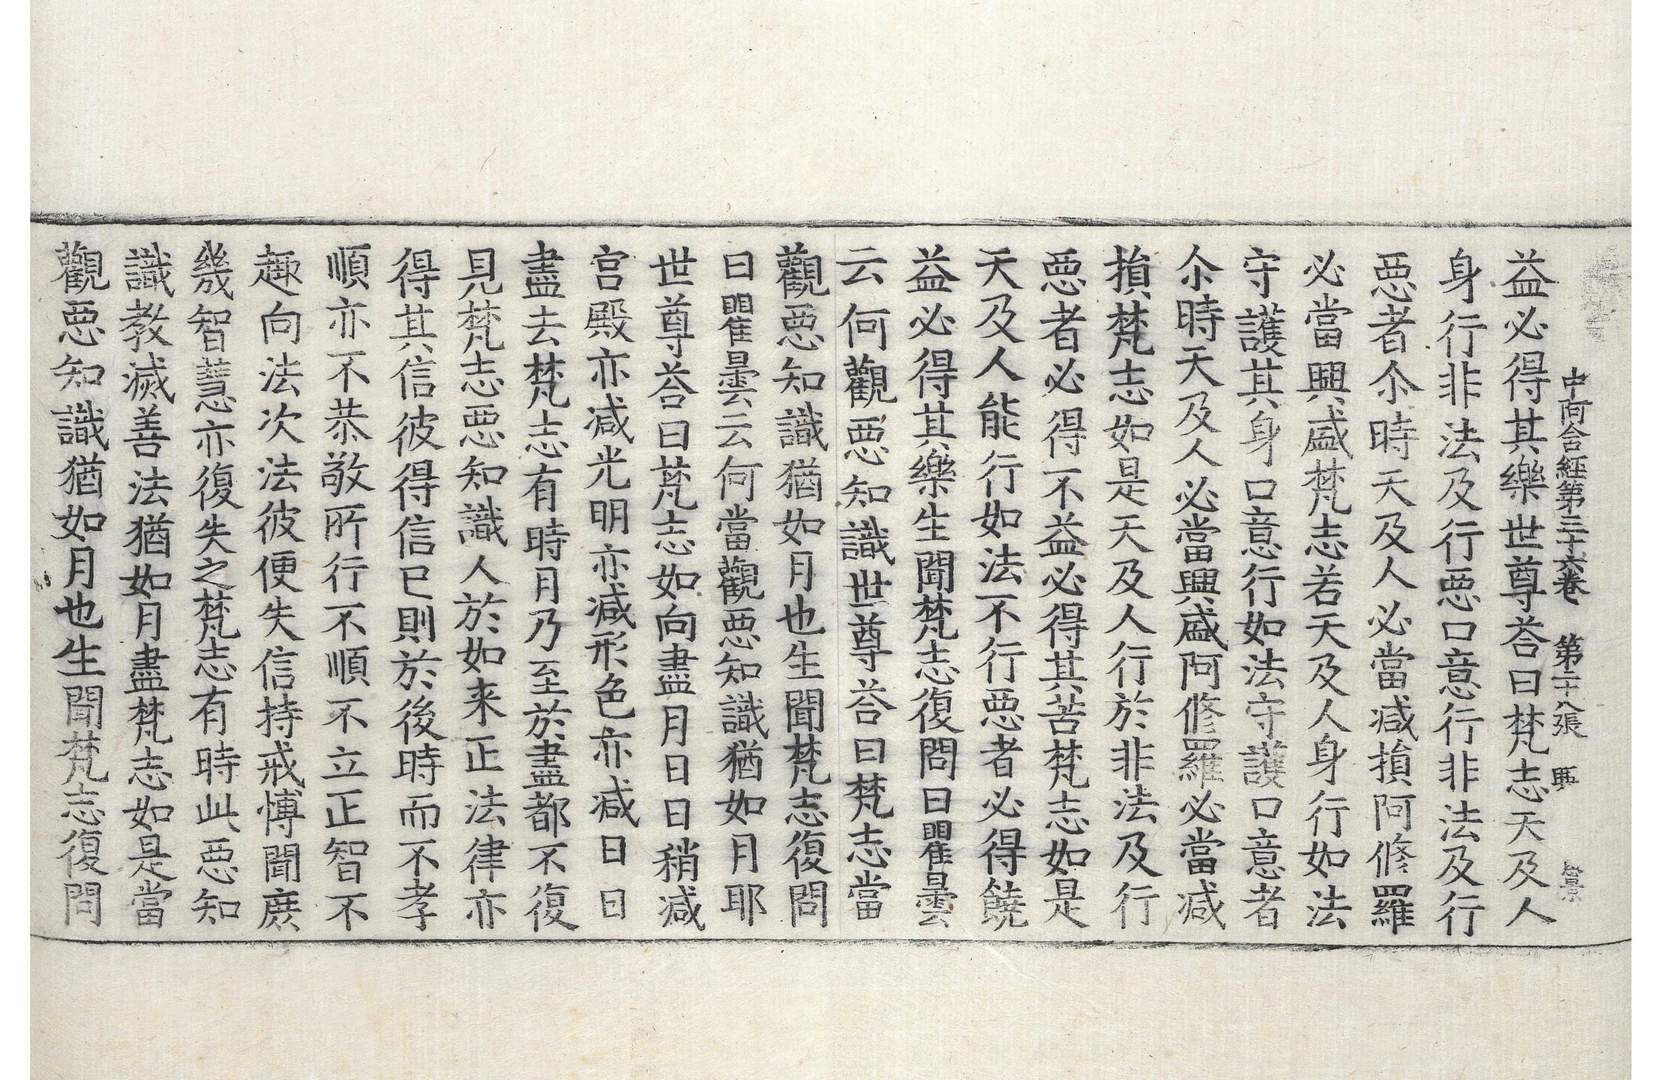 中阿含經第三十六卷 第二十八張 興
益必得其樂世尊荅曰梵志天及人
身行非法及行惡口意行非法及行
惡者尒時天及人必當减損阿修羅
必當興盛梵志若天及人身行如法
守護其身口意行如法守護口意者
尒時天及人必當興盛阿修羅必當减
損梵志如是天及人行於非法及行
惡者必得不益必得其苦梵志如是
天及人能行如法不行惡者必得饒
益必得其樂生聞梵志復問曰瞿曇
云何觀惡知識世尊荅曰梵志當
觀惡知識猶如月也生聞梵志復問
曰瞿曇云何當觀惡知識猶如月耶
世尊荅曰梵志如向盡月日日稍减
宫殿亦减光明亦减形色亦减日日
盡去梵志有時月乃至於盡都不復
見梵志惡知識人於如来正法律亦
得其信彼得信已則於後時而不孝
順亦不恭敬所行不順不立正智不
趣向法次法彼便失信持戒博聞庶
幾智慧亦復失之梵志有時此惡知
識教滅善法猶如月盡梵志如是當
觀惡知識猶如月也生聞梵志復問